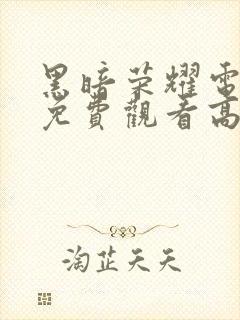 黑暗荣耀電
免費觀看高
淘芷天天